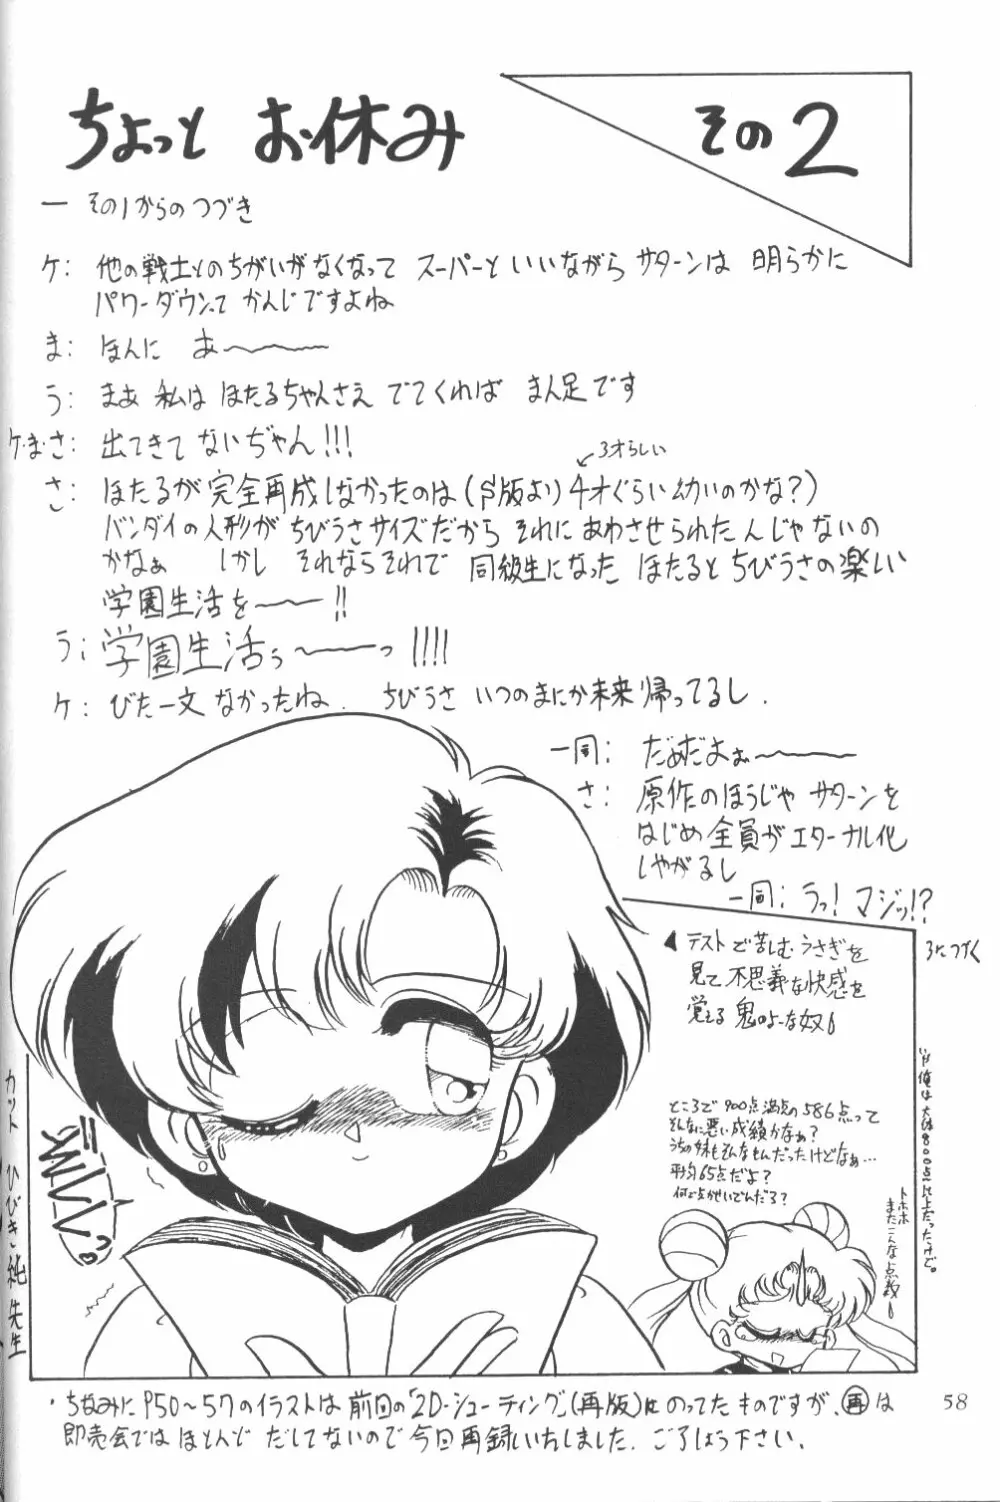 ちょっと お休み
その2
ー その1からのつづき
ケ: 他の戦士とのちがいがなくなって スーパーといいながら サターンは 明らかに
パワーダウンって かんじですよね
ま: ほんに あ〜〜〜
う: まあ 私は ほたるちゃんさえ でてくれば まん足です
ケ・ま・さ: 出てきて ないぢゃん!!!
3才らしい
さ: ほたるが 完全再成しなかったのは (S版より 4才ぐらい幼いのかな?)
バンダイの人形が ちびうさサイズだから それに あわさせられたんじゃないの
かなぁ しかし それならそれで 同級生になった ほたると ちびうさの楽しい
学園生活を〜〜!!
う: 学園生活ぅ〜〜っ!!!!
ケ: びた一文 なかったね. ちびうさ いつのまにか未来帰ってるし.
一同: だめだよぉ〜〜〜
さ: 原作のほうじゃ サターンを
はじめ全員が エターナル化
しやがるし
一同: うっ! マジッ!?
3につづく
◀ テストで苦しむ うさぎを
見て 不思議な快感を
覚える 鬼のよーな奴
ところで 900点満点の586点って
そんなに悪い成績かなぁ?
うちの妹もそんなもんだったけどなぁ…
平均65点だよ?
何で点かせいでんだろ?
俺は 大体800点以上だったけど。
トホホ
またこんな点数
カット ひびき純先生
・ちなみに P50〜57のイラストは 前回の「2D・シューティング」(再版)に のってた ものですが、再は
即売会では ほとんど だしてないので 今回再録いたしました. ごりょうしょう下さい.
58